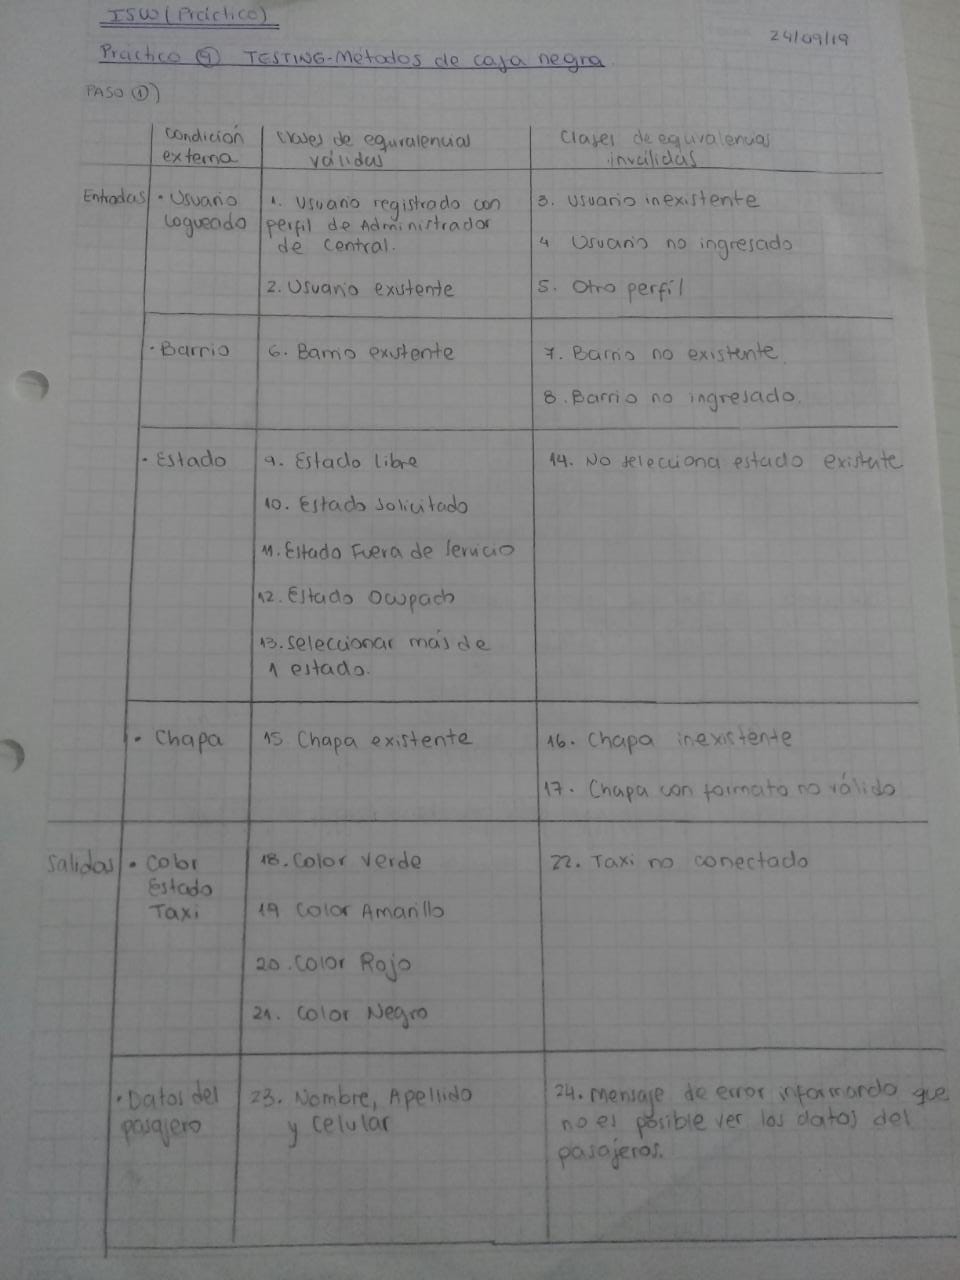 ISW (Práctico)
24/09/19
Práctico 9 TESTING-Métodos de caja negra.
PASO 1)
Condición externa
Clases de equivalencia válidas
Clases de equivalencias inválidas
Entradas
• Usuario
logueado
1. Usuario registrado con
perfil de Administrador
de Central.
2. Usuario existente
3. Usuario inexistente
4 Usuario no ingresado
5. Otro perfil
• Barrio
6. Barrio existente
7. Barrio no existente.
8. Barrio no ingresado.
• Estado
9. Estado libre
10. Estado Solicitado
11. Estado Fuera de Servicio
12. Estado Ocupado
13. Seleccionar más de
1 estado.
14. No selecciona estado existente
• Chapa
15 Chapa existente
16. Chapa inexistente
17. Chapa con formato no válido
Salidas
• Color
Estado
Taxi
18. Color verde
19 Color Amarillo
20. Color Rojo
21. Color Negro
22. Taxi no conectado
• Datos del
pasajero
23. Nombre, Apellido
y celular
24. Mensaje de error informando que
no es posible ver los datos del
pasajeros.